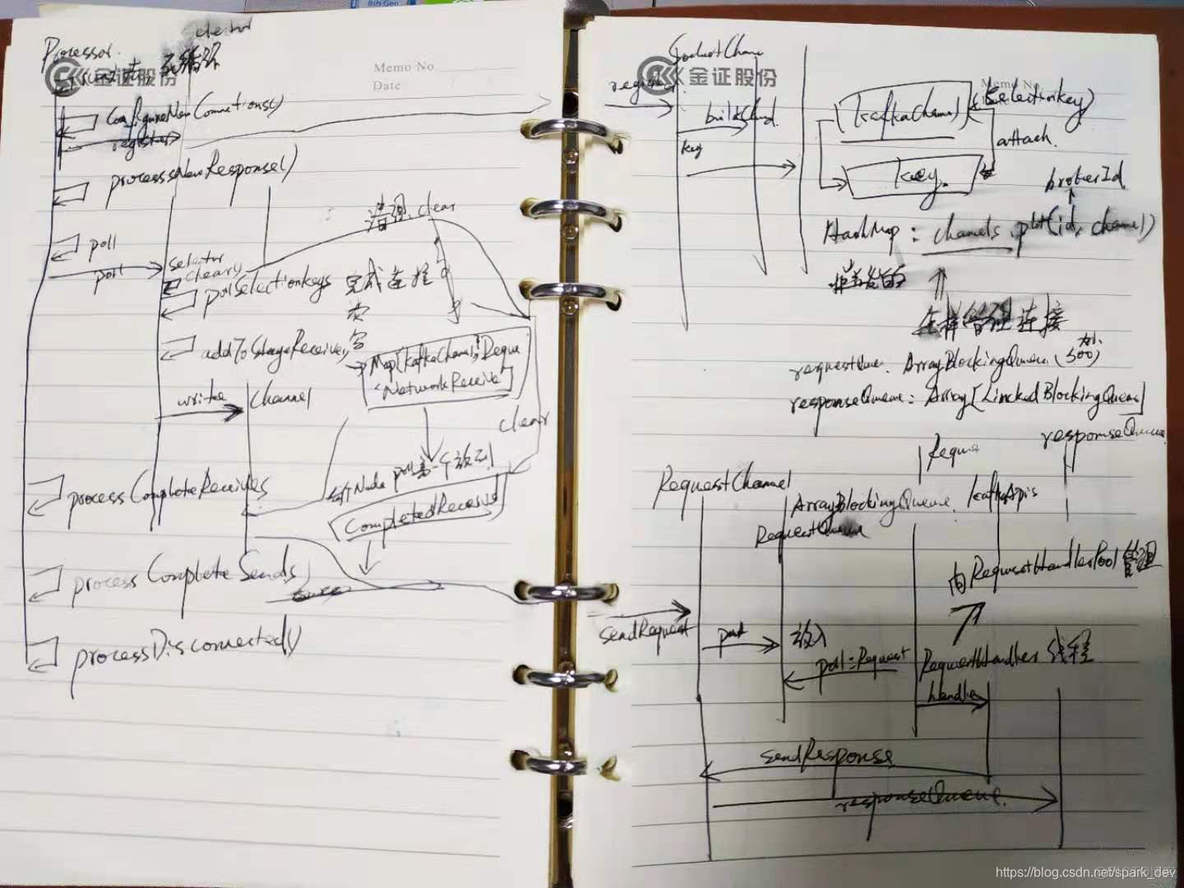 Processor
Selector
金证股份
Memo No
Date
configureNewConnections()
register
processNewResponse()
清理 clear
poll
poll
selector
clear()
pollSelectionkeys 完成连接
addToStageReceive
Map[kafkaChannel, Deque
NetworkReceive]
write
channel
clear
processCompleteReceives
poll 第一个放到
CompletedReceive
processCompleteSends
processDisconnected()
金证股份
Memo No
register
buildChannel
key
kafkaChannel
(Selectionkey)
attach
key
brokerId
HashMap : channels.put(id, channel)
连接
requestQueue ArrayBlockingQueue (500)
responseQueue : Array[LinkedBlockingQueue]
responseQueue
RequestChannel
ArrayBlockingQueue
kafkaApis
RequestQueue
由RequestHandlerPool管理
sendRequest
put
放入
poll=Request
RequestHandler 线程
handle
sendResponse
responseQueue
https://blog.csdn.net/spark_dev